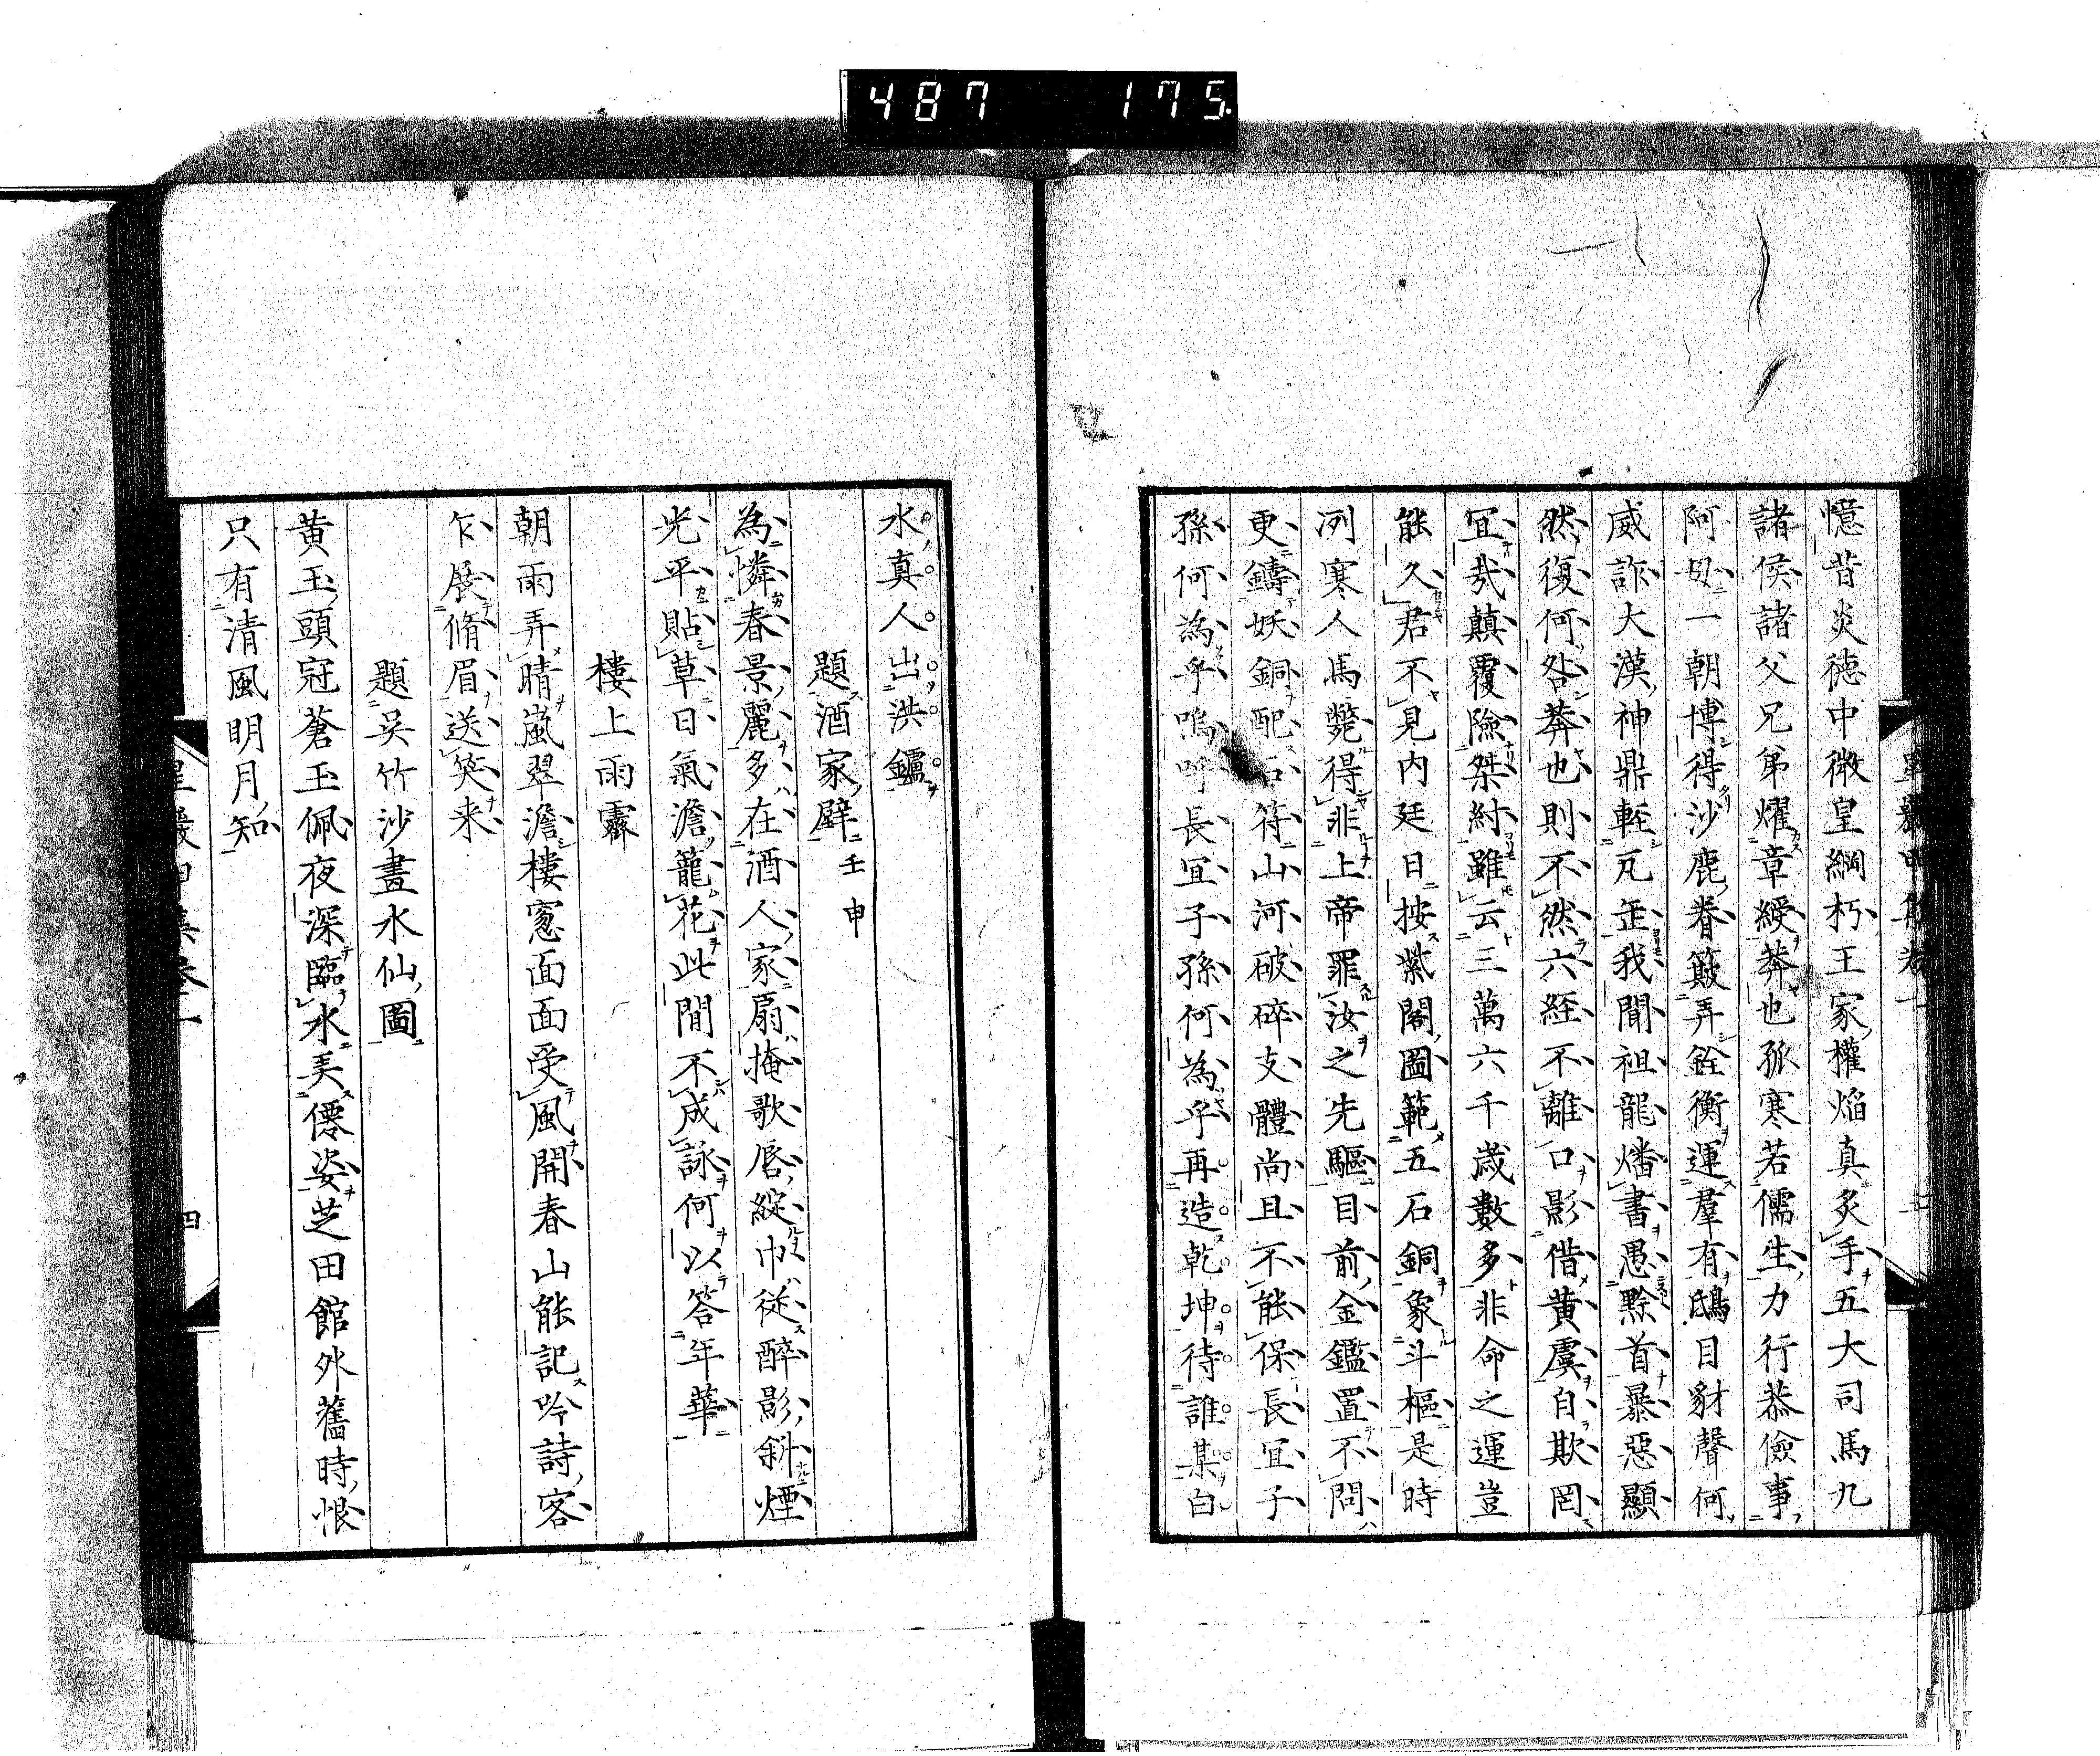 487 175
憶昔炎徳中微皇綱朽王家權焔真炙手五大司馬九
諸侯諸父兄弟燿章綬莽也孤寒若儒生力行恭儉事
阿母一朝博得沙鹿眷簸弄銓衡運羣有鴟目豺聲何
威詐大漢神鼎輕瓦缶我聞祖龍燔書愚黔首暴惡顯
然復何咎莽也則不然六経不離口影借黄虞自欺罔
宜哉蘱覆險桀紂雖云三萬六千歳數多非命之運豈
能久君不見内廷日按紫閣圖範五石銅象斗樞是時
冽寒人馬斃得非上帝罪汝之先驅目前金鑑置不問
更鑄妖銅配石符山河破碎支體尚且不能保長宜子
孫何為乎嗚呼長宜子孫何為乎再造乾坤待誰某白
水真人出洪鑪
題酒家壁壬申
為憐春景麗多在酒人家扇掩歌唇綻巾従醉影斜煙
光平貼草日氣澹籠花此間不成詠何以答年華
樓上雨霽
朝雨弄晴嵐翠澹樓窓面面受風開春山能記吟詩客
乍展脩眉送笑来
題呉竹沙畫水仙圖
黄玉頭冠蒼玉佩夜深臨水美僊姿芝田館外舊時恨
只有清風明月知
四